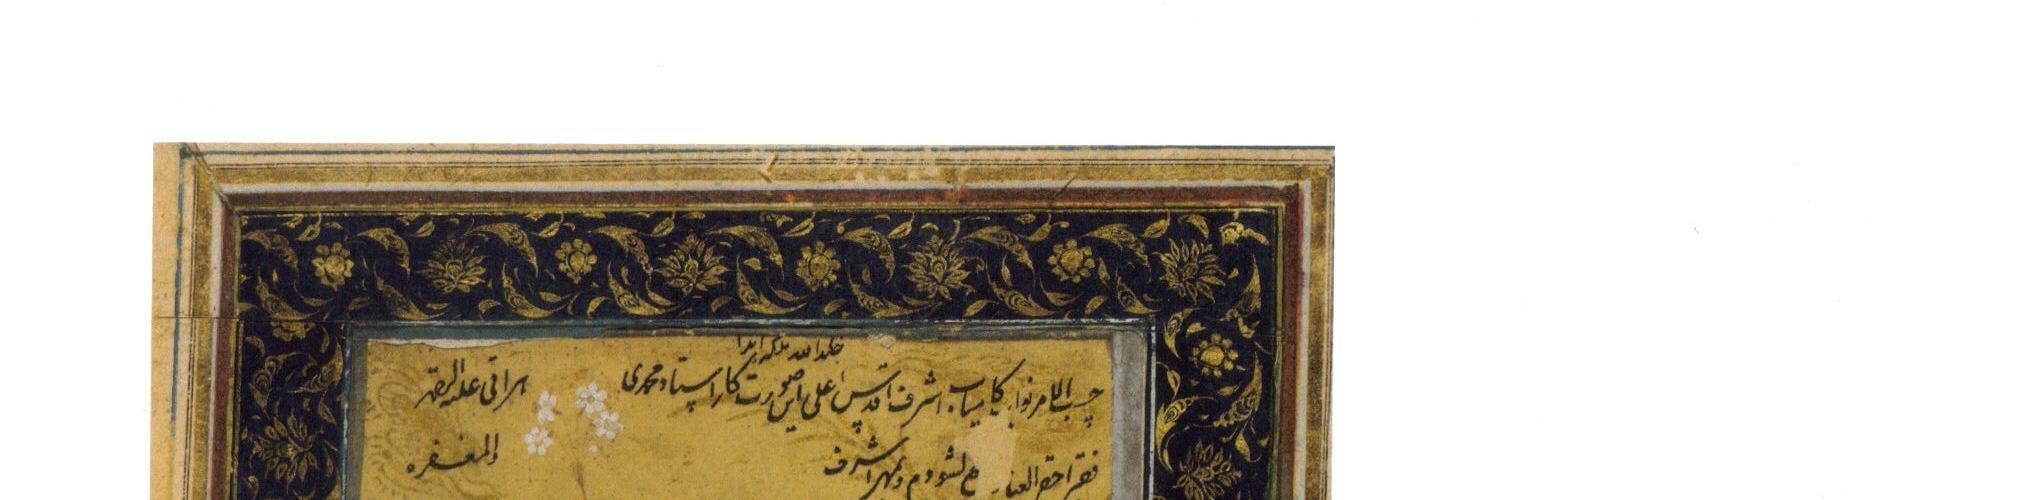 خلد الله ملکه ابدا
حسب الامر نواب کامیاب اشرف اقدس اعلی این صورت کار استاد محمدی هراتی علیه الرحمة
والمغفره
فقرا احقر العباد
اشرف